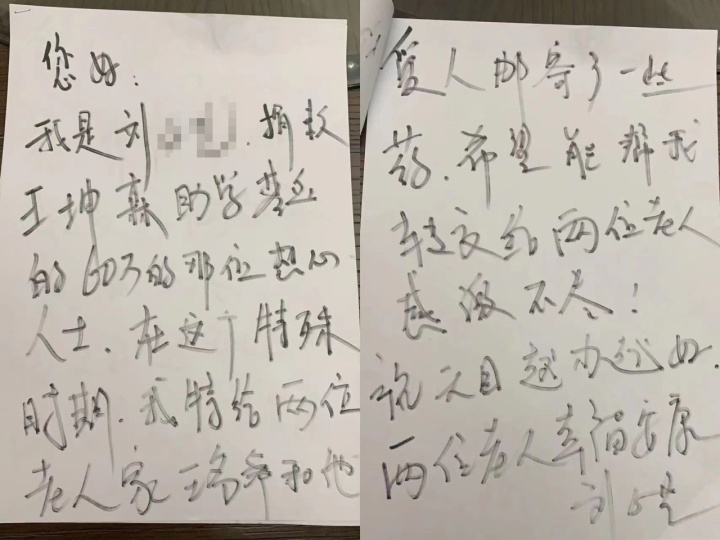 您好：
我是刘 捐款
王坤森助学基金
的60万的那位热心
人士、在这个特殊
时期、我特给两位
老人家 和他
爱人邮寄了一些
药、希望能帮我
转交给两位老人
感激不尽！
祝 越办越好、
两位老人幸福安康
刘